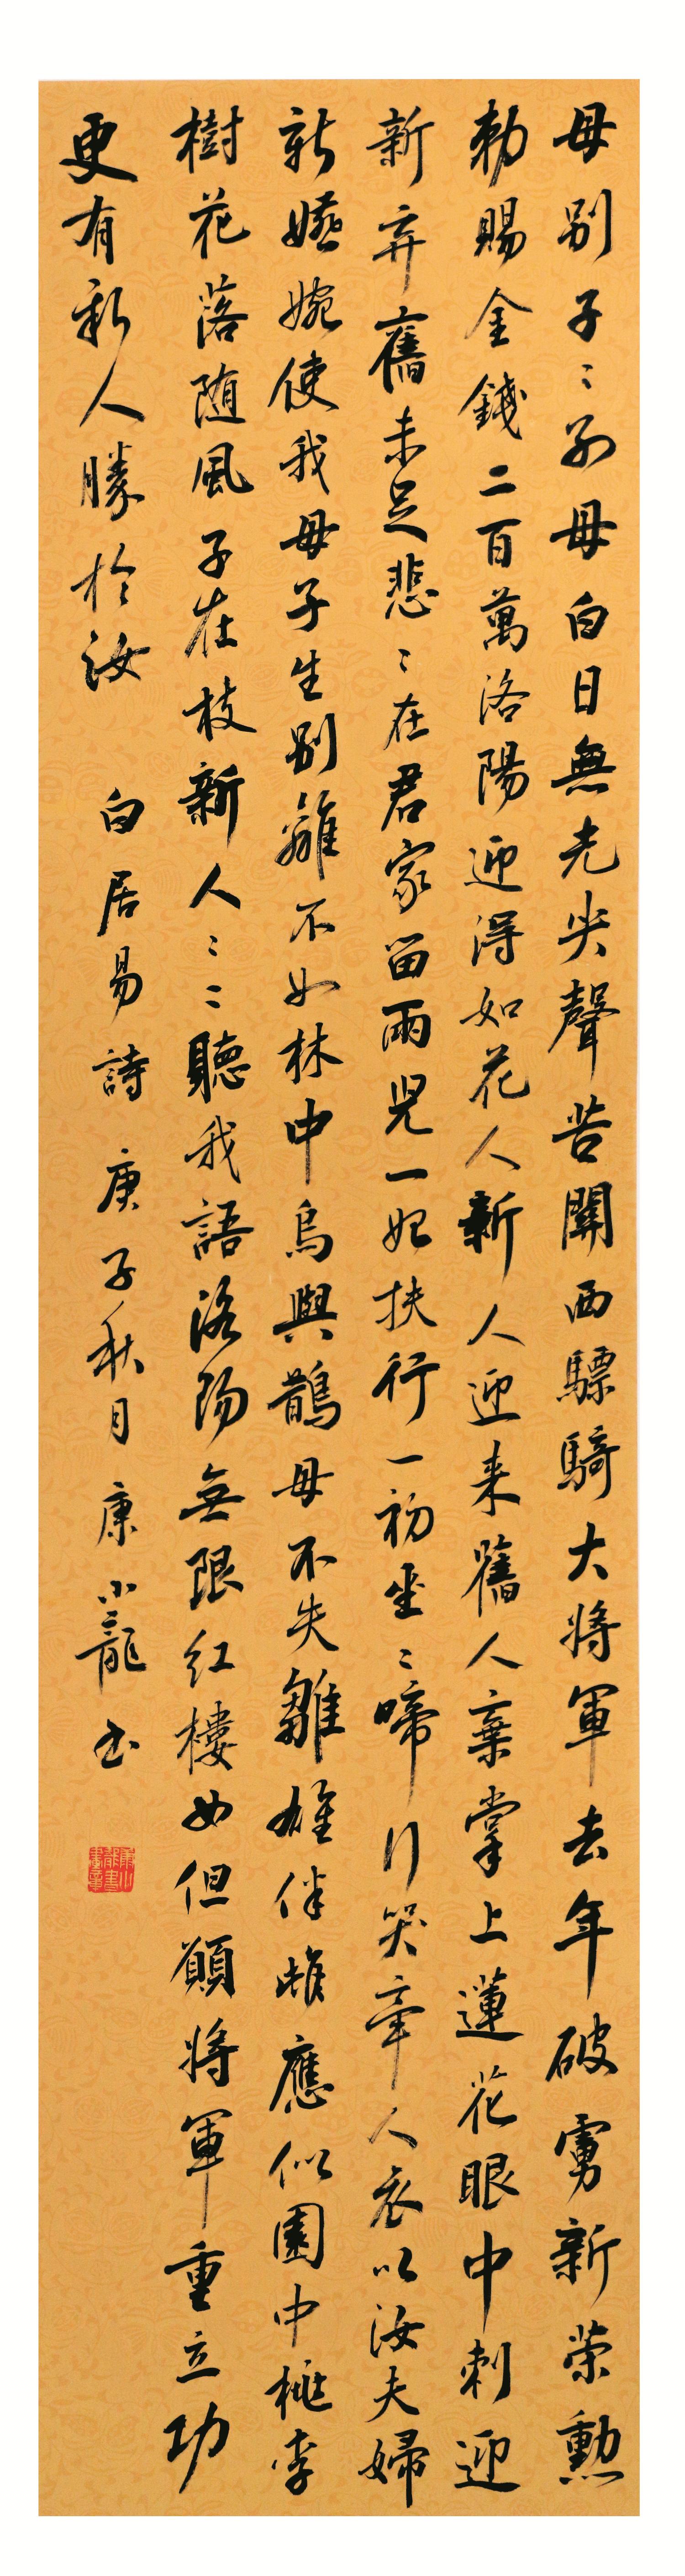 母別子〻別母白日無光哭聲苦關西驃騎大将軍去年破虜新荣勳
勅賜金錢二百萬洛陽迎得如花人新人迎来舊人棄掌上蓮花眼中刺迎
新弃舊未足悲〻在君家留兩児一始扶行一初坐〻啼行哭牽人衣以汝夫婦
新嬿婉使我母子生別離不如林中烏與鵲母不失雛雄伴雌應似園中桃李
樹花落随風子在枝新人〻〻聽我語洛陽無限红樓女但願将軍重立功
更有新人勝於汝
白居易詩 庚子秋月 康小龍书